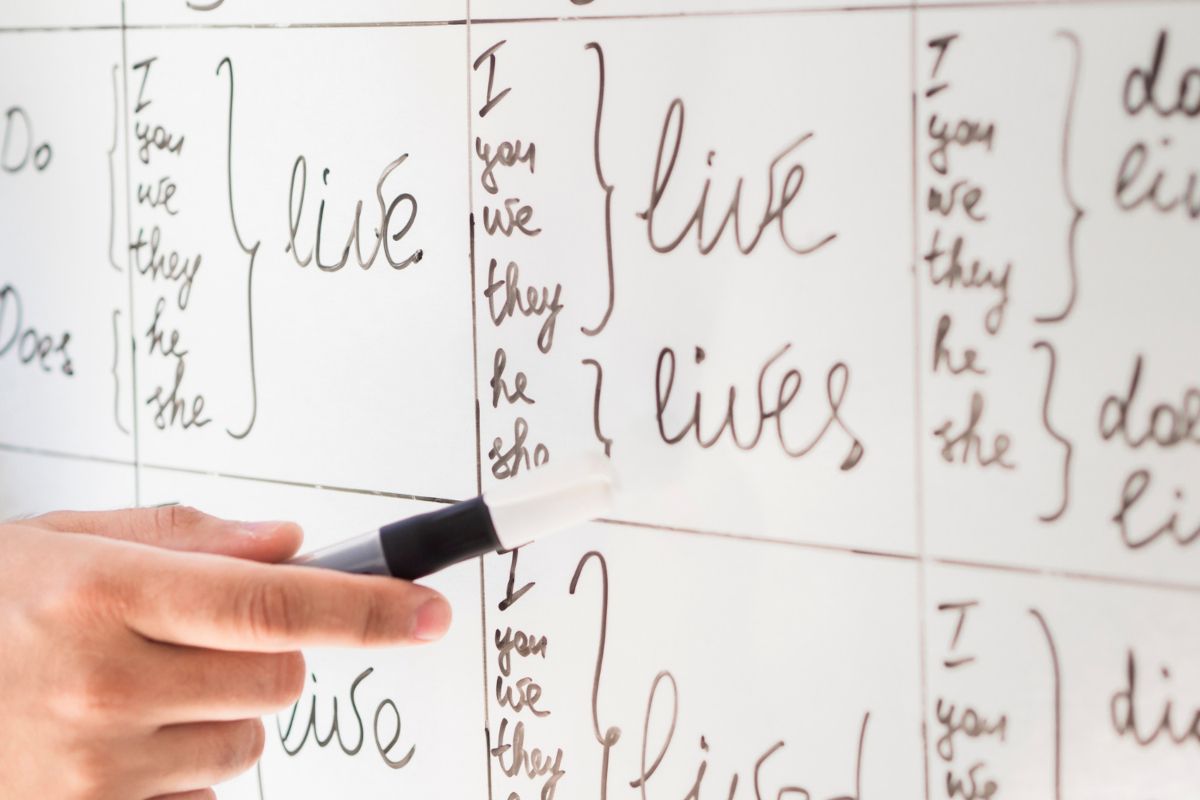 Do
Does
I
you
we
they
he
she
live
I
you
we
they
he
she
live
lives
I
you
we
they
he
she
live
I
you
we
they
lived
I
you
we